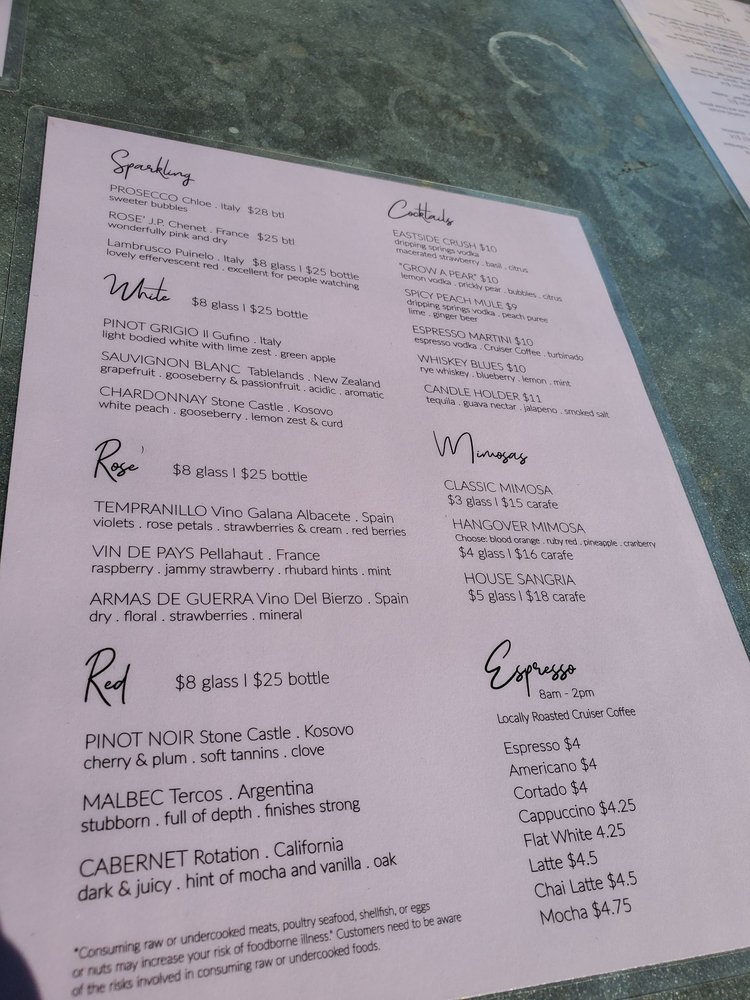 Sparkling
PROSECCO Chloe . Italy $28 btl
sweeter bubbles
ROSE' J.P. Chenet . France $25 btl
wonderfully pink and dry
Lambrusco Puinelo . Italy $8 glass | $25 bottle
lovely effervescent red . excellent for people watching
White $8 glass | $25 bottle
PINOT GRIGIO Il Gufino . Italy
light bodied white with lime zest . green apple
SAUVIGNON BLANC Tablelands . New Zealand
grapefruit . gooseberry & passionfruit . acidic . aromatic
CHARDONNAY Stone Castle . Kosovo
white peach . gooseberry . lemon zest & curd
Rose' $8 glass | $25 bottle
TEMPRANILLO Vino Galana Albacete . Spain
violets . rose petals . strawberries & cream . red berries
VIN DE PAYS Pellahaut . France
raspberry . jammy strawberry . rhubard hints . mint
ARMAS DE GUERRA Vino Del Bierzo . Spain
dry . floral . strawberries . mineral
Red $8 glass | $25 bottle
PINOT NOIR Stone Castle . Kosovo
cherry & plum . soft tannins . clove
MALBEC Tercos . Argentina
stubborn . full of depth . finishes strong
CABERNET Rotation . California
dark & juicy . hint of mocha and vanilla . oak
*Consuming raw or undercooked meats, poultry seafood, shellfish, or eggs
or nuts may increase your risk of foodborne illness." Customers need to be aware
of the risks involved in consuming raw or undercooked foods.
Cocktails
EASTSIDE CRUSH $10
dripping springs vodka
macerated strawberry . basil . citrus
"GROW A PEAR" $10
lemon vodka . prickly pear . bubbles . citrus
SPICY PEACH MULE $9
dripping springs vodka . peach puree
lime . ginger beer
ESPRESSO MARTINI $10
espresso vodka . Cruiser Coffee . turbinado
WHISKEY BLUES $10
rye whiskey . blueberry . lemon . mint
CANDLE HOLDER $11
tequila . guava nectar . jalapeno . smoked salt
Mimosas
CLASSIC MIMOSA
$3 glass | $15 carafe
HANGOVER MIMOSA
Choose: blood orange . ruby red . pineapple . cranberry
$4 glass | $16 carafe
HOUSE SANGRIA
$5 glass | $18 carafe
Espresso
8am - 2pm
Locally Roasted Cruiser Coffee
Espresso $4
Americano $4
Cortado $4
Cappuccino $4.25
Flat White 4.25
Latte $4.5
Chai Latte $4.5
Mocha $4.75